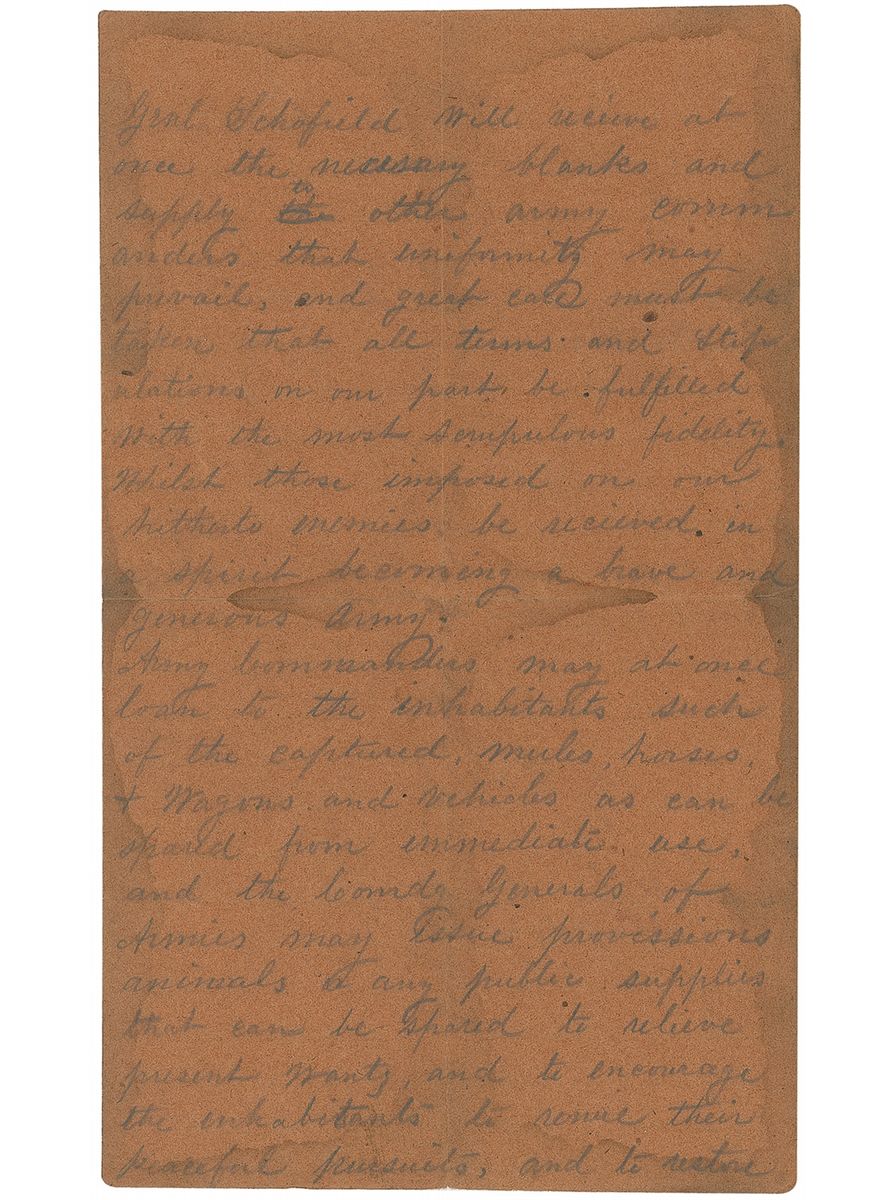 Genl Schofield will recieve at
once the necessary blanks and
supply the to other army comm
anders that uniformity may
prevail, and great care must be
taken that all terms and Stip
ulations on our part, be fulfilled
With the most scrupulous fidelity.
Whilst those imposed on our
hitherto enemies, be recieved in
a spirit becoming a brave and
generous Army.
Army Commanders may at once
loan to the inhabitants such
of the captured, mules, horses,
+ Wagons and vehicles as can be
spared from immediate use,
and the Comdg Generals of
Armies may Issue provissions
animals & any public supplies
that can be spared to relieve
present Wants, and to encourage
the inhabitants to renue their
peaceful pursuits, and to restore